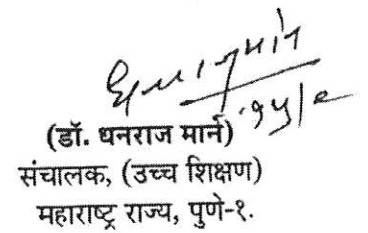 १५/९
(डॉ. धनराज माने)
संचालक, (उच्च शिक्षण)
महाराष्ट्र राज्य, पुणे-१.